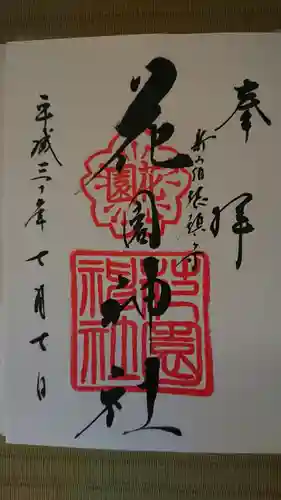 奉拝
新宿総鎮守
花園神社
平成三十年七月七日
花園神社